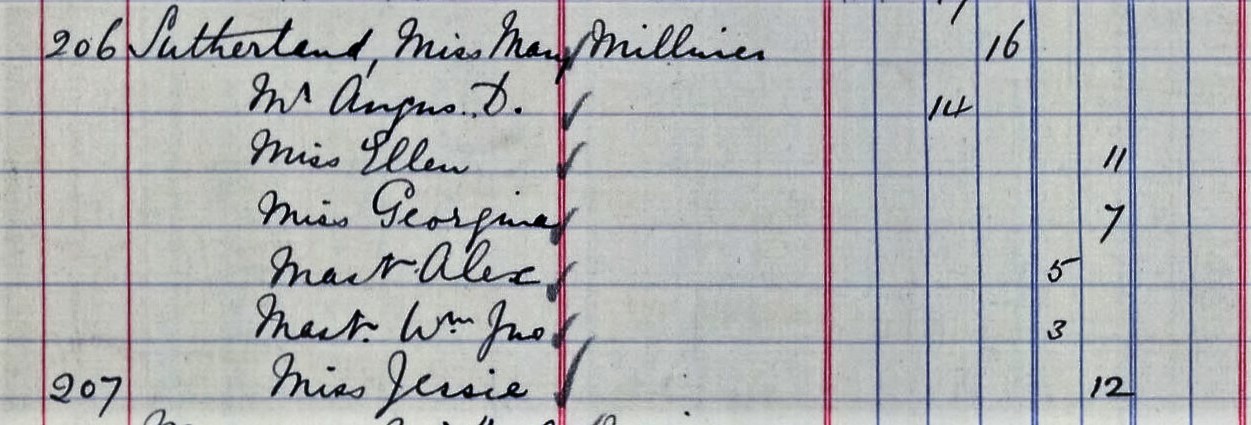 206 Sutherland, Miss Mary Milliner 16
Mr Angus. D. 14
Miss Ellen 11
Miss Georgina 7
Mastr Alex 5
Mastr. Wm Jno 3
207 Miss Jessie 12